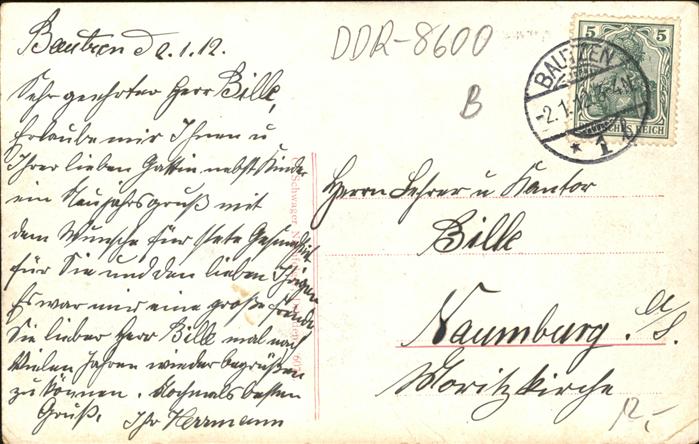 Bautzen d 2.1.12.
Sehr geehrter Herr Bille,
Erlaube mir Ihnen u
Ihrer lieben Gattin nebst Kinde
ein Neujahrsgruß mit
dem Wunsche für stete Gesundheit
für Sie und den lieben Ihrigen
Es war mir eine große Freude
Sie lieber Herr Bille mal nach
vielen Jahren wieder begrüßen
zu können. Nochmals besten
Gruß. Ihr Herrmann
DDR-8600
B
5 5
DEUTSCHES REICH
BAUTZEN
-2.1.12.
* 1
Herrn Lehrer u Kantor
Bille
Naumburg a/S.
Moritzkirche
12,-
Schwager